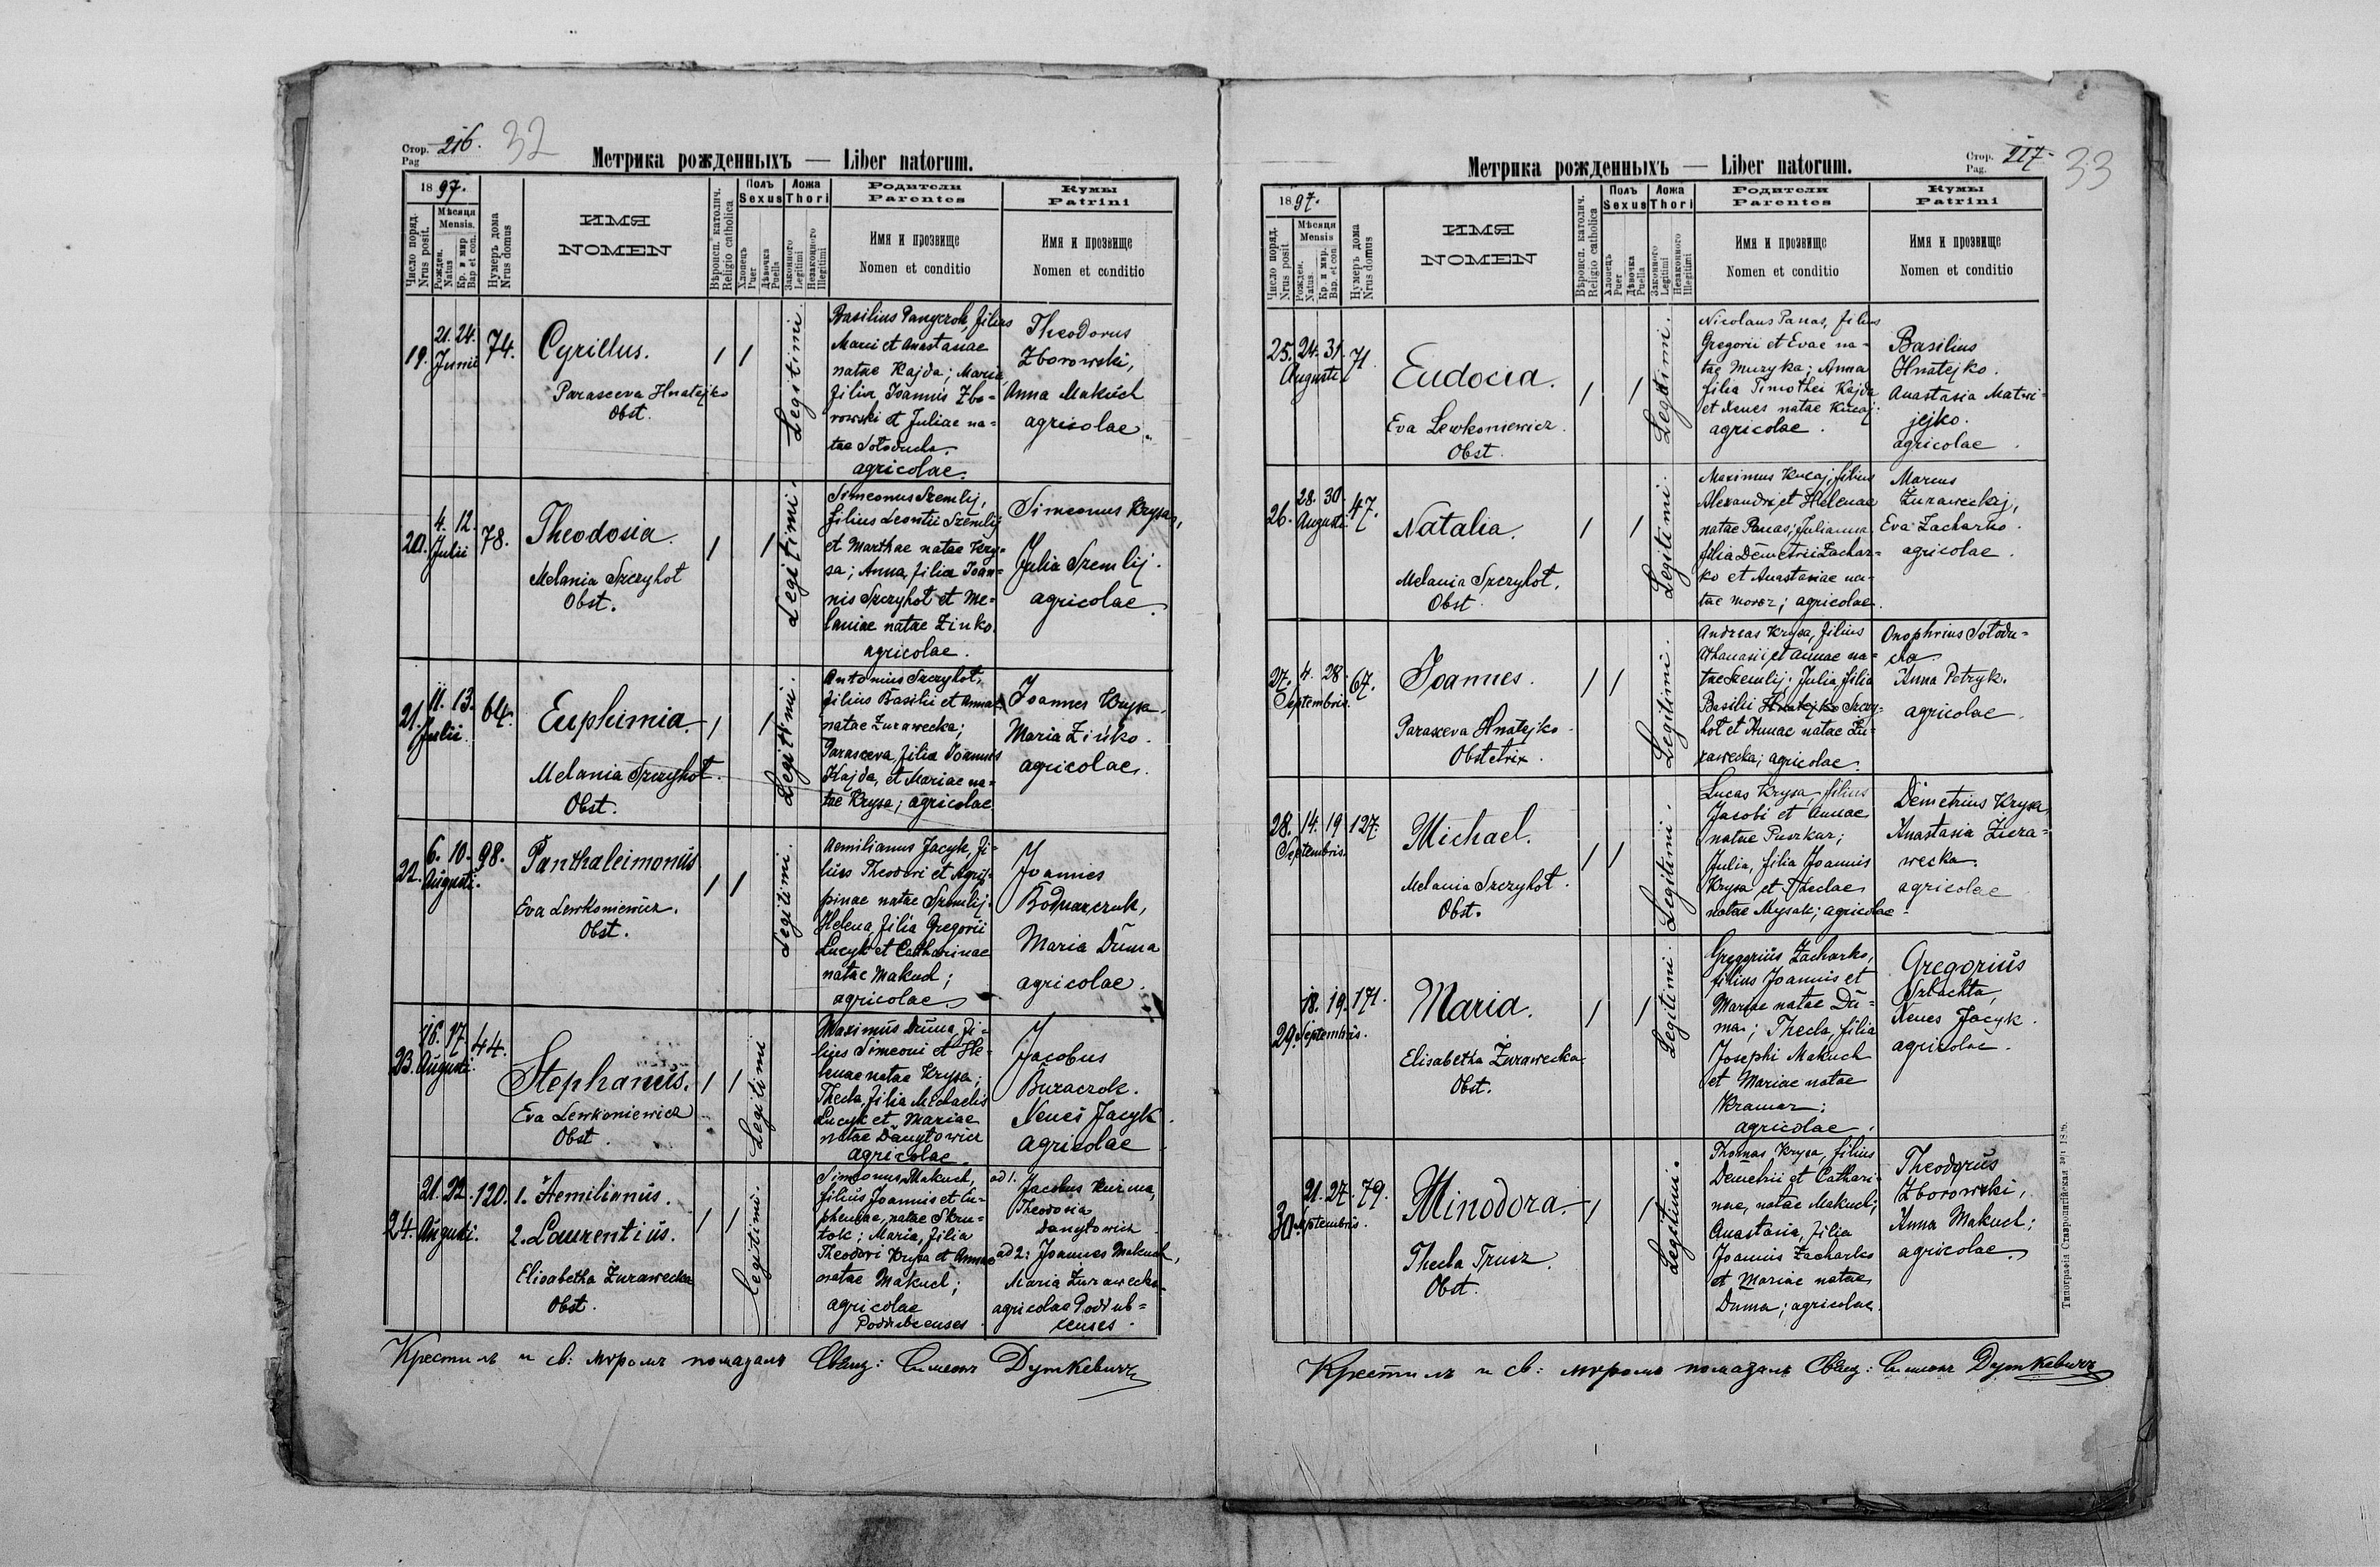 Стор. 216. 32
Pag
Метрика рожденныхъ — Liber natorum.
1897.
Число поряд.
Nrus posit.
Мѣсяця
Mensis.
Рожден.
Natus
Кр. и мир
Bap et con.
Нумеръ дома
Nrus domus
ИМЯ
NOMEN
Вѣроисп. католич.
Religio catholica
Полъ
Sexus
Хлопець
Puer
Дѣвочка
Puella
Ложа
Thori
Законного
Legitimi
Незаконного
Illegitimi
Родители
Parentes
Имя и прозвище
Nomen et conditio
Кумы
Patrini
Имя и прозвище
Nomen et conditio
19. 21. 24. Junii 74.
Cyrillus.
Parasceva Hnatejko
Obst.
/ /
Legitimi.
Basilius Panyczok, filius
Marci et Anastasiae
natae Kajda; Maria,
filia Joannis Zbo-
rowski et Juliae na-
tae Sołoducha.
agricolae.
Theodorus
Zborowski,
Anna Makuch
agricolae.
20. 4. 12. Julii 78.
Theodosia.
Melania Szczyhot
Obst.
/ /
Legitimi.
Simeonus Szemlij,
filius Leontii Szemlij
et Marthae natae Kry-
sa; Anna, filia Joan-
nis Szczyhot et Me-
laniae natae Zinko.
agricolae.
Simeonus Krysa,
Julia Szemlij.
agricolae.
21. 11. 13. Julii. 64.
Euphimia.
Melania Szczyhot.
Obst.
/ /
Legitimi.
Antonius Szczyhot,
filius Basilii et Annae
natae Żurawecka;
Parasceva, filia Joannis
Kajda, et Mariae na-
tae Krysa; agricolae
Joannes Krysa.
Maria Zińko.
agricolae.
22. 6. 10. Augusti. 98.
Panthaleimonius
Eva Lewkoniewicz.
Obst.
/ /
Legitimi.
Aemilianus Jacyk, fi-
lius Theodori et Agrip-
pinae natae Szemlij.
Helena, filia Gregorii
Lucyk et Catharinae
natae Makuch;
agricolae
Joannes
Bodnarczuk,
Maria Duma
agricolae.
23. 16. 17. Augusti. 44.
Stephanus.
Eva Lewkoniewicz
Obst.
/ /
Legitimi
Maximus Duma, fi-
lius Simeoni et He-
lenae natae Krysa;
Thecla, filia Michaelis
Lucyk et Mariae
natae Danyłowicz
agricolae.
Jacobus
Buraczok.
Xenes Jacyk.
agricolae
24. 21. 22. Augusti. 120.
1. Aemilianus.
2. Laurentius.
Elisabetha Żurawecka
Obst.
/ /
Legitimi.
Simeonus Makuch,
filius Joannis et Eu-
phemiae, natae Skru-
tok; Maria, filia
Theodori Krysa et Annae
natae Makuch;
agricolae
Poddubcenses
ad 1. Jacobus Kuźma,
Theodosia
Danyłowicz
ad 2: Joannes Makuch,
Maria Żurawecka
agricolae Poddub-
censes.
Крестилъ и св: мѵромъ помазалъ Свящ: Симеонъ Дуткевичъ
Стор. 217. 33
Pag.
Метрика рожденныхъ — Liber natorum.
1897.
Число поряд.
Nrus posit.
Мѣсяця
Mensis
Рожден.
Natus.
Кр. и мир.
Bap. et con.
Нумеръ дома
Nrus domus
ИМЯ
NOMEN
Вѣроисп. католич.
Religio catholica
Полъ
Sexus
Хлопець
Puer
Дѣвочка
Puella
Ложа
Thori
Законного
Legitimi
Незаконного
Illegitimi
Родители
Parentes
Имя и прозвище
Nomen et conditio
Кумы
Patrini
Имя и прозвище
Nomen et conditio
25. 24. 31. Augusti 71.
Eudocia.
Eva Lewkoniewicz.
Obst.
/ /
Legitimi.
Nicolaus Panas, filius
Gregorii et Evae na-
tae Muzyka; Anna
filia Timothei Kajda
et Xenes natae Kucaj:
agricolae.
Basilius
Hnatejko.
Anastasia Matwi-
jejko.
agricolae.
26. 28. 30. Augusti 47.
Natalia.
Melania Szczyhot.
Obst.
/ /
Legitimi.
Maximus Kucaj, filius
Alexandri, et Helenae
natae Panas; Julianna
filia Demetrii Zachar-
ko et Anastasiae na-
tae Moroz; agricolae.
Marcus
Żuraweckij,
Eva Zacharko.
agricolae.
27. 4. 28. Septembris. 67.
Joannes.
Parasceva Hnatejko.
Obstetrix.
/ /
Legitimi.
Andreas Krysa, filius
Athanasii et Annae na-
tae Szemlij; Julia, filia
Basilii Hnatejko Szczy-
hot et Annae natae Żu-
rawecka; agricolae.
Onophrius Sołodu-
cha.
Anna Petryk.
agricolae.
28. 14. 19. Septembris. 127.
Michael.
Melania Szczyhot.
Obst.
/ /
Legitimi.
Lucas Krysa, filius
Jacobi et Annae
natae Puszkar;
Julia, filia Joannis
Krysa et Theclae
natae Mysak; agricolae.
Demetrius Krysa,
Anastasia Żura-
wecka.
agricolae
29. 18. 19. Septembris. 171.
Maria.
Elisabetha Żurawecka.
Obst.
/ /
Legitimi.
Gregorius Zacharko,
filius Joannis et
Mariae natae Du-
ma; Thecla, filia
Josephi Makuch
et Mariae natae
Kramar;
agricolae.
Gregorius
Szlachta,
Xenes Jacyk.
agricolae.
30. 21. 27. Septembris. 79.
Minodora.
Thecla Trusz.
Obst.
/ /
Legitimi.
Thomas Krysa, filius
Demetrii et Cathari-
nae, natae Makuch;
Anastasia, filia
Joannis Zacharko
et Mariae natae
Duma; agricolae.
Theodorus
Zborowski,
Anna Makuch;
agricolae.
Крестилъ и св: мѵромъ помазалъ Свящ: Симеонъ Дуткевичъ
Типографія Ставропигійская